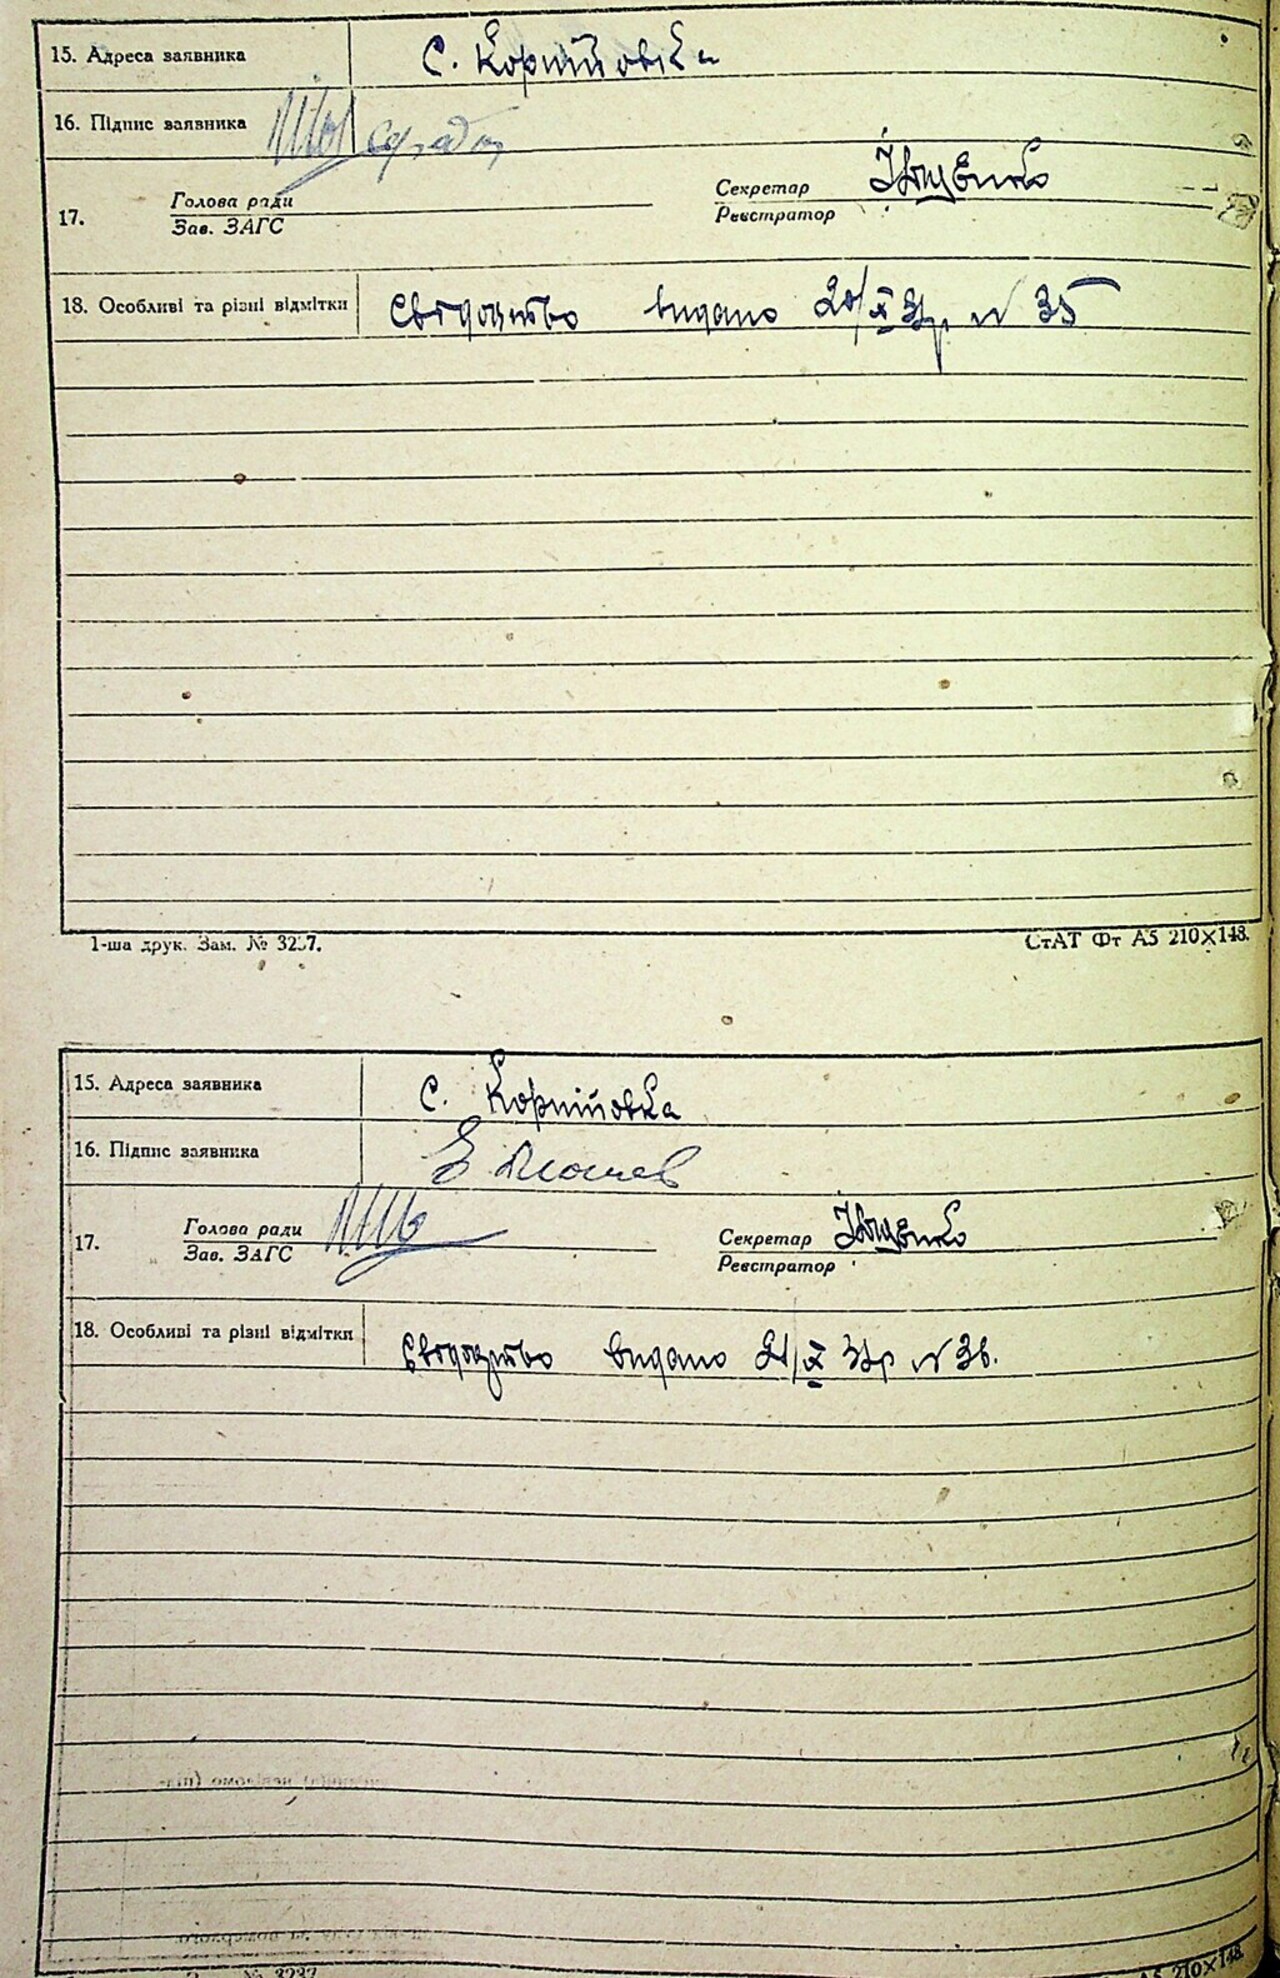 15. Адреса заявника С. Корнійовка
16. Підпис заявника
17. Голова ради Секретар Іващенко
Зав. ЗАГС Реєстратор
18. Особливі та різні відмітки Свідоцтво видано 20/X 33р. № 35
1-ша друк. Зам. № 3237. СтАТ Фт А5 210×148.
15. Адреса заявника С. Корнійовка
16. Підпис заявника
17. Голова ради Секретар Іващенко
Зав. ЗАГС Реєстратор
18. Особливі та різні відмітки Свідоцтво видано 21/X 33р № 36.
№ 3237 А5 210×148.